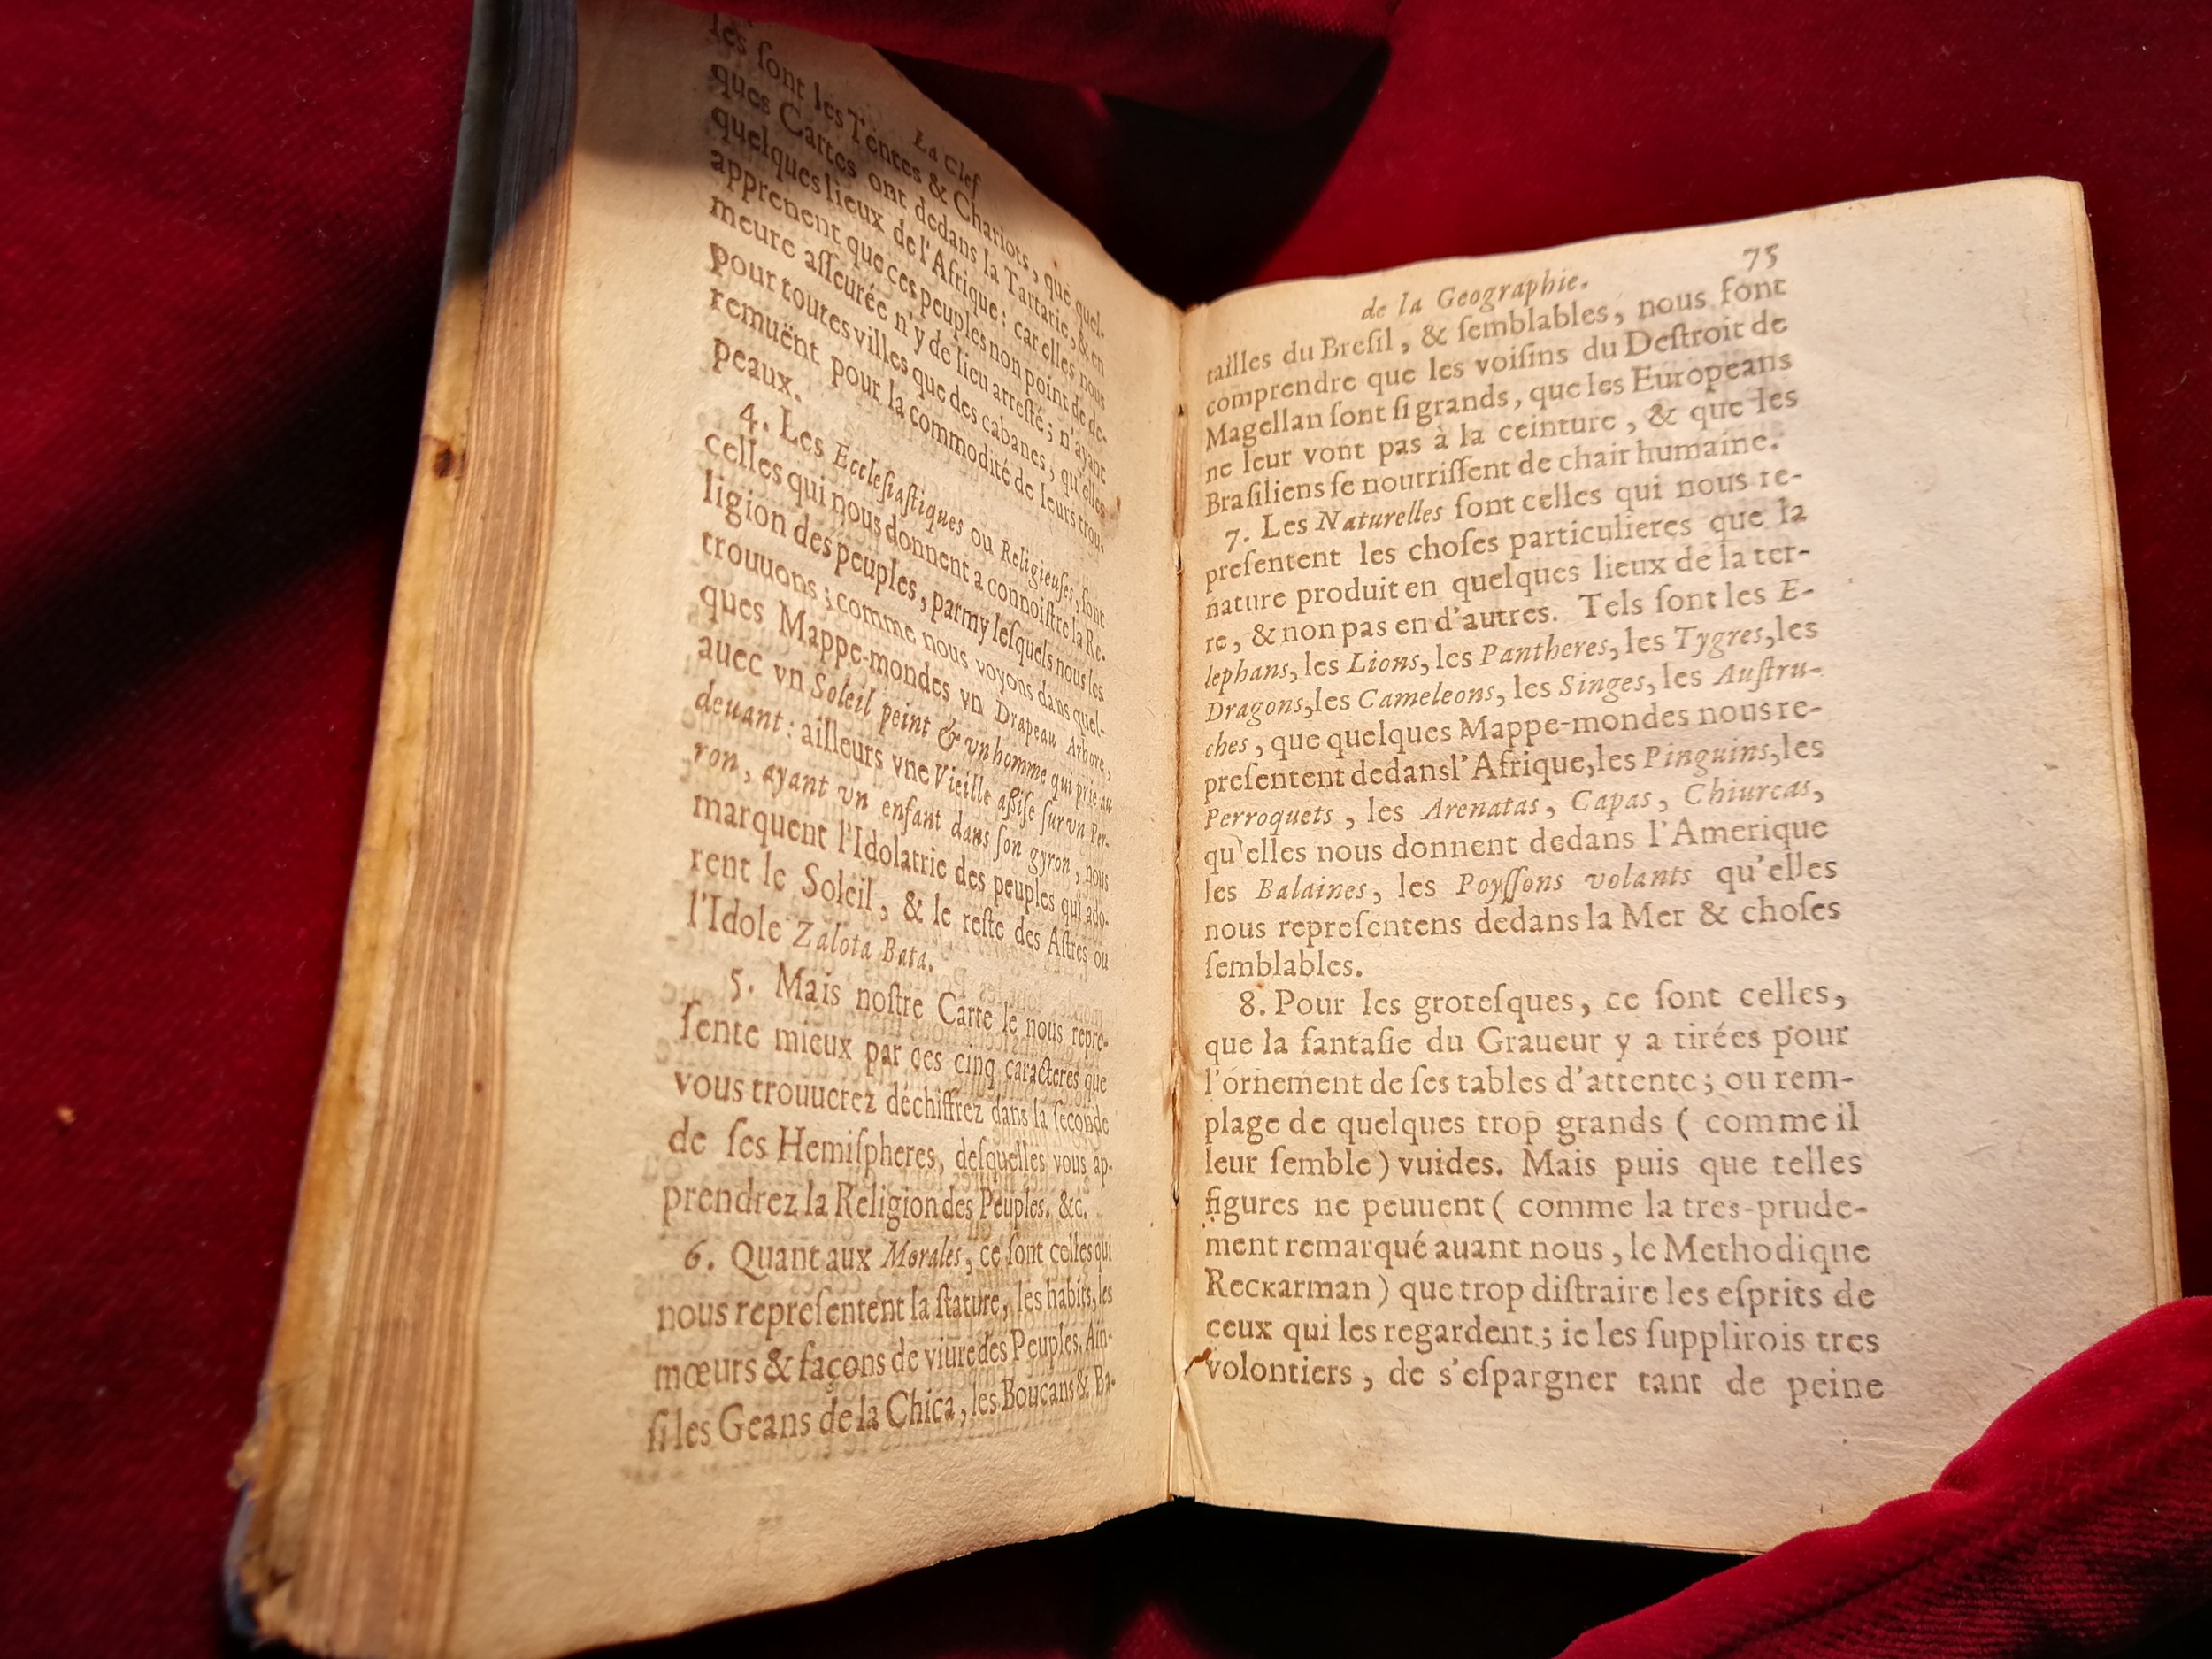 La Clef
les ſont les Tentes & Chariots, que quel-
ques Cartes ont dedans la Tartarie, & en
quelques lieux de l'Afrique : car elles nous
apprenent que ces peuples non point de de-
meure aſſeurée n'y de lieu arreſté ; n'ayant
pour toutes villes que des cabanes, qu'elles
remuënt pour la commodité de leurs trou-
peaux.
4. Les Eccleſiaſtiques ou Religieuſes, ſont
celles qui nous donnent a connoiſtre la Re-
ligion des peuples, parmy leſquels nous les
trouuons ; comme nous voyons dans quel-
ques Mappe-mondes vn Drapeau Arbore,
auec vn Soleil peint & vn homme qui prie au
deuant : ailleurs vne Vieille aßiſe ſur vn Per-
ron, ayant vn enfant dans ſon gyron, nous
marquent l'Idolatrie des peuples qui ado-
rent le Soleil, & le reſte des Aſtres ou
l'Idole Zalota Bata.
5. Mais noſtre Carte le nous repre-
ſente mieux par ces cinq caracteres que
vous trouuerez déchiffrez dans la ſeconde
de ſes Hemiſpheres, deſquelles vous ap-
prendrez la Religion des Peuples. &c.
6. Quant aux Morales, ce ſont celles qui
nous repreſentent la ſtature, les habits, les
mœurs & façons de viure des Peuples. Ain-
ſi les Geans de la Chica, les Boucans & Ba-
de la Geographie. 75
tailles du Breſil, & ſemblables, nous font
comprendre que les voiſins du Deſtroit de
Magellan ſont ſi grands, que les Europeans
ne leur vont pas à la ceinture, & que les
Braſiliens ſe nourriſſent de chair humaine.
7. Les Naturelles ſont celles qui nous re-
preſentent les choſes particulieres que la
nature produit en quelques lieux de la ter-
re, & non pas en d'autres. Tels ſont les E-
lephans, les Lions, les Pantheres, les Tygres, les
Dragons, les Cameleons, les Singes, les Auſtru-
ches, que quelques Mappe-mondes nous re-
preſentent dedans l'Afrique, les Pinguins, les
Perroquets, les Arenatas, Capas, Chiurcas,
qu'elles nous donnent dedans l'Amerique
les Balaines, les Poyſſons volants qu'elles
nous repreſentens dedans la Mer & choſes
ſemblables.
8. Pour les groteſques, ce ſont celles,
que la fantaſie du Graueur y a tirées pour
l'ornement de ſes tables d'attente ; ou rem-
plage de quelques trop grands ( comme il
leur ſemble ) vuides. Mais puis que telles
figures ne peuuent ( comme la tres-prude-
ment remarqué auant nous, le Methodique
Reckarman ) que trop diſtraire les eſprits de
ceux qui les regardent ; ie les ſupplirois tres
volontiers, de s'eſpargner tant de peine